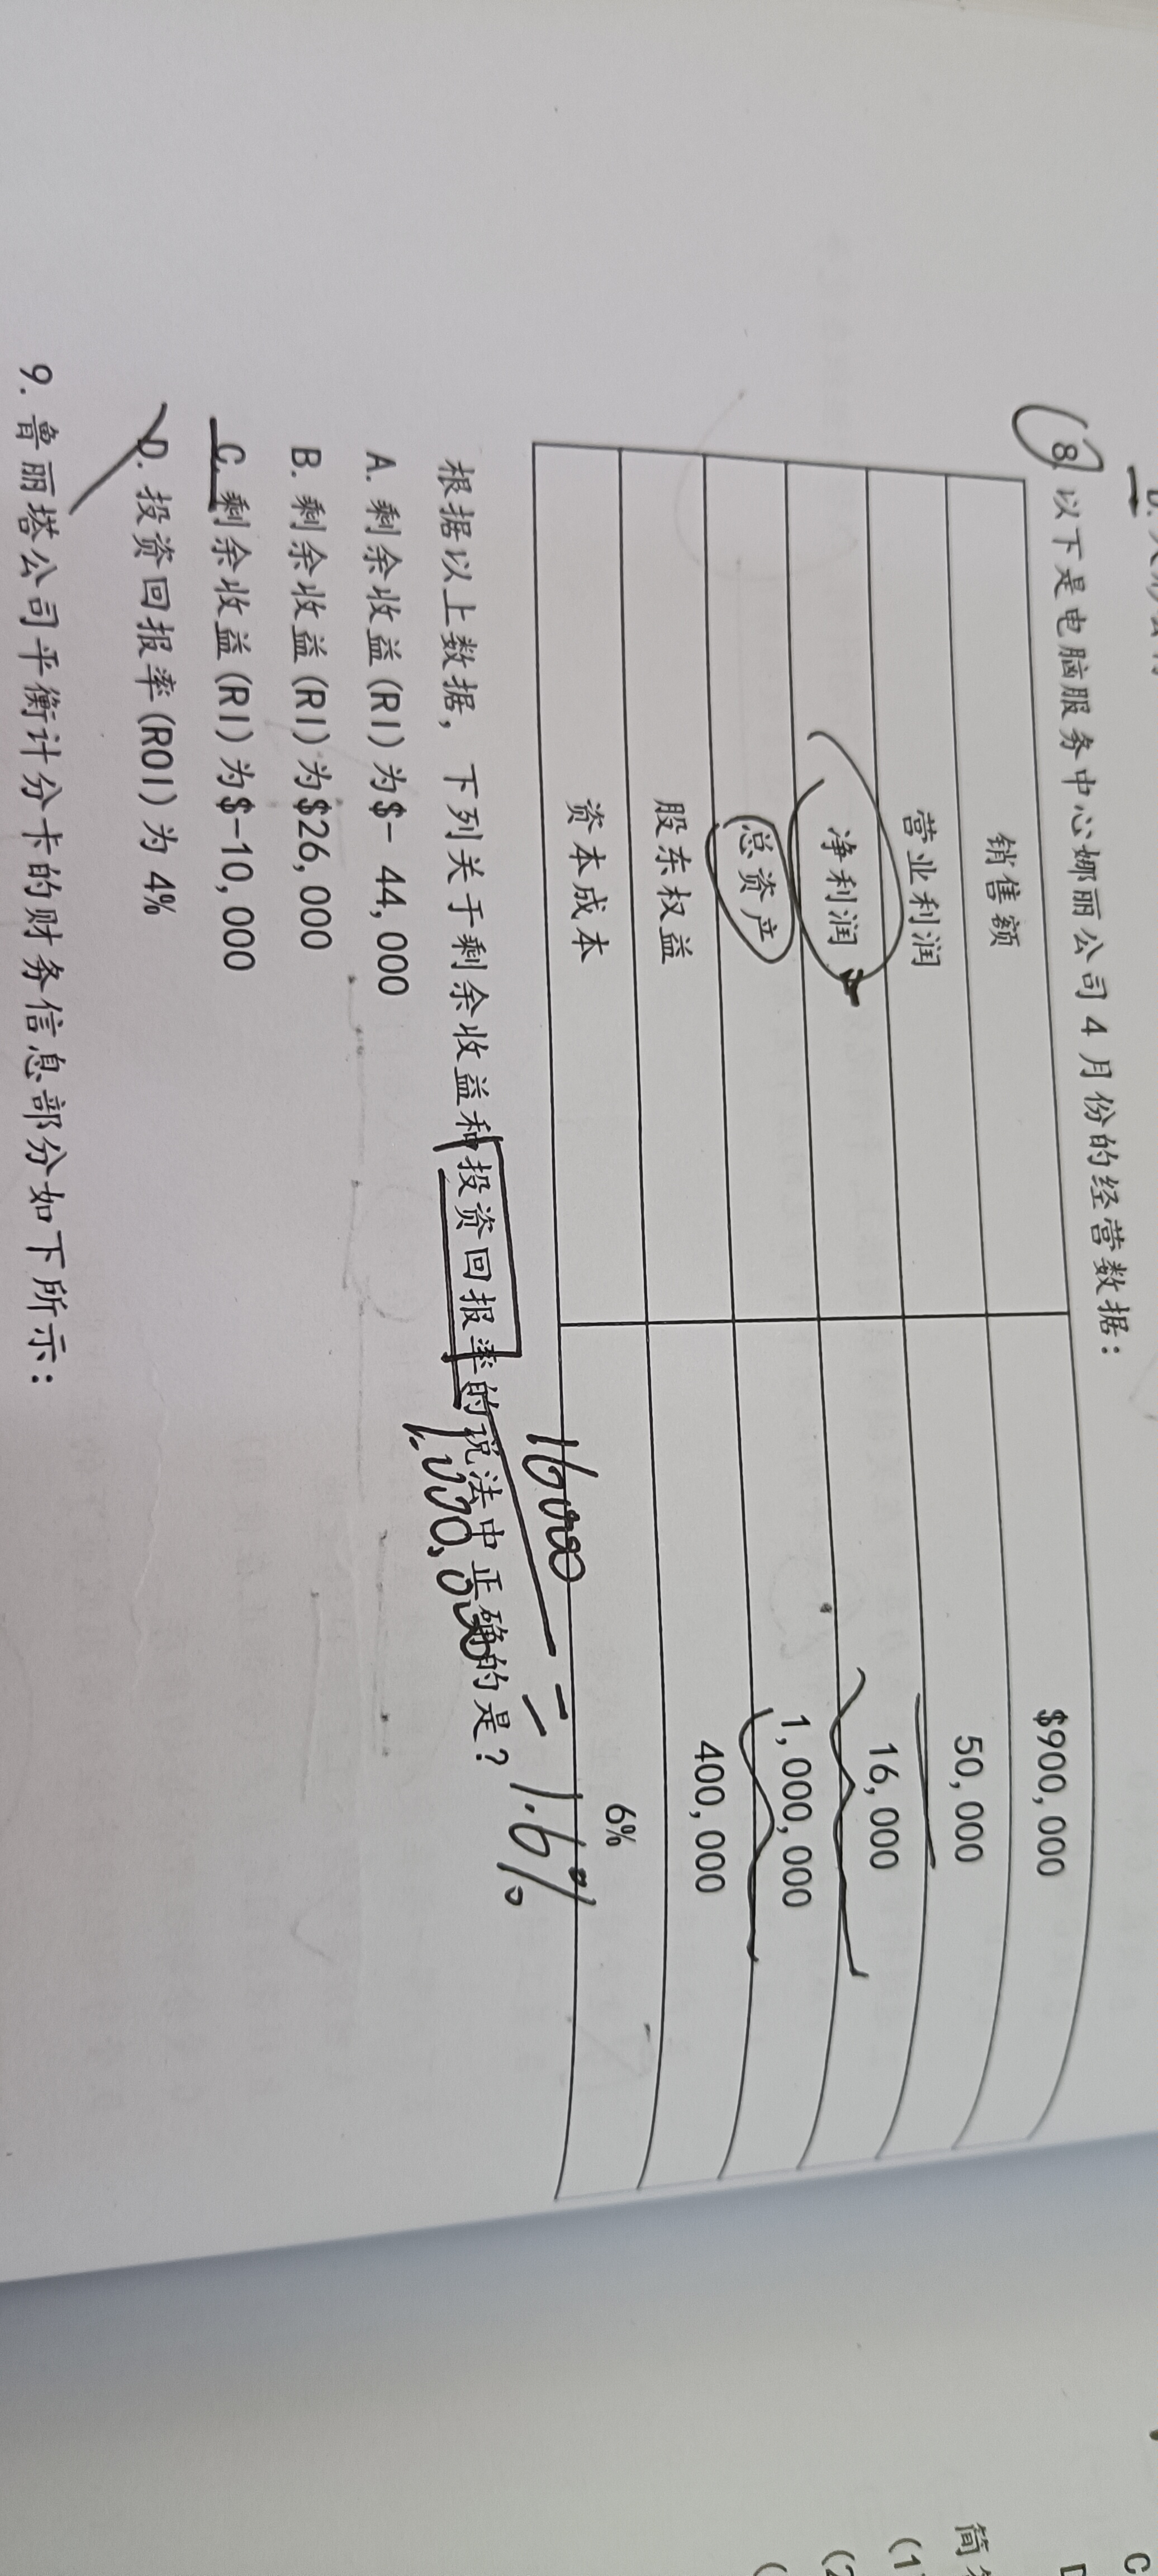 8. 以下是电脑服务中心娜丽公司4月份的经营数据：
销售额 $900,000
营业利润 50,000
净利润 16,000
总资产 1,000,000
股东权益 400,000
资本成本 6%
16000
= 1.6%
根据以上数据，下列关于剩余收益和投资回报率的说法中正确的是？
A. 剩余收益(RI)为$- 44,000
B. 剩余收益(RI)为$26,000
C. 剩余收益(RI)为$-10,000
D. 投资回报率(ROI)为 4%
9. 鲁丽塔公司平衡计分卡的财务信息部分如下所示：